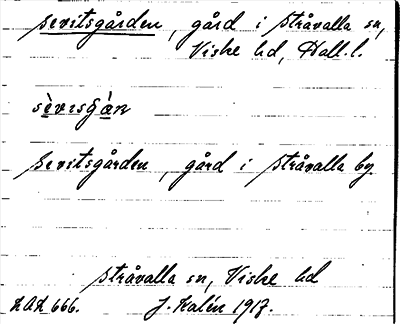 Sevitsgården, gård i Stråvalla sn,
Viske hd, Hall. l.
sèvisgàn
Sevitsgården, gård i Stråvalla by
Stråvalla sn, Viske hd
LAL 666. J. Kalén 1917.